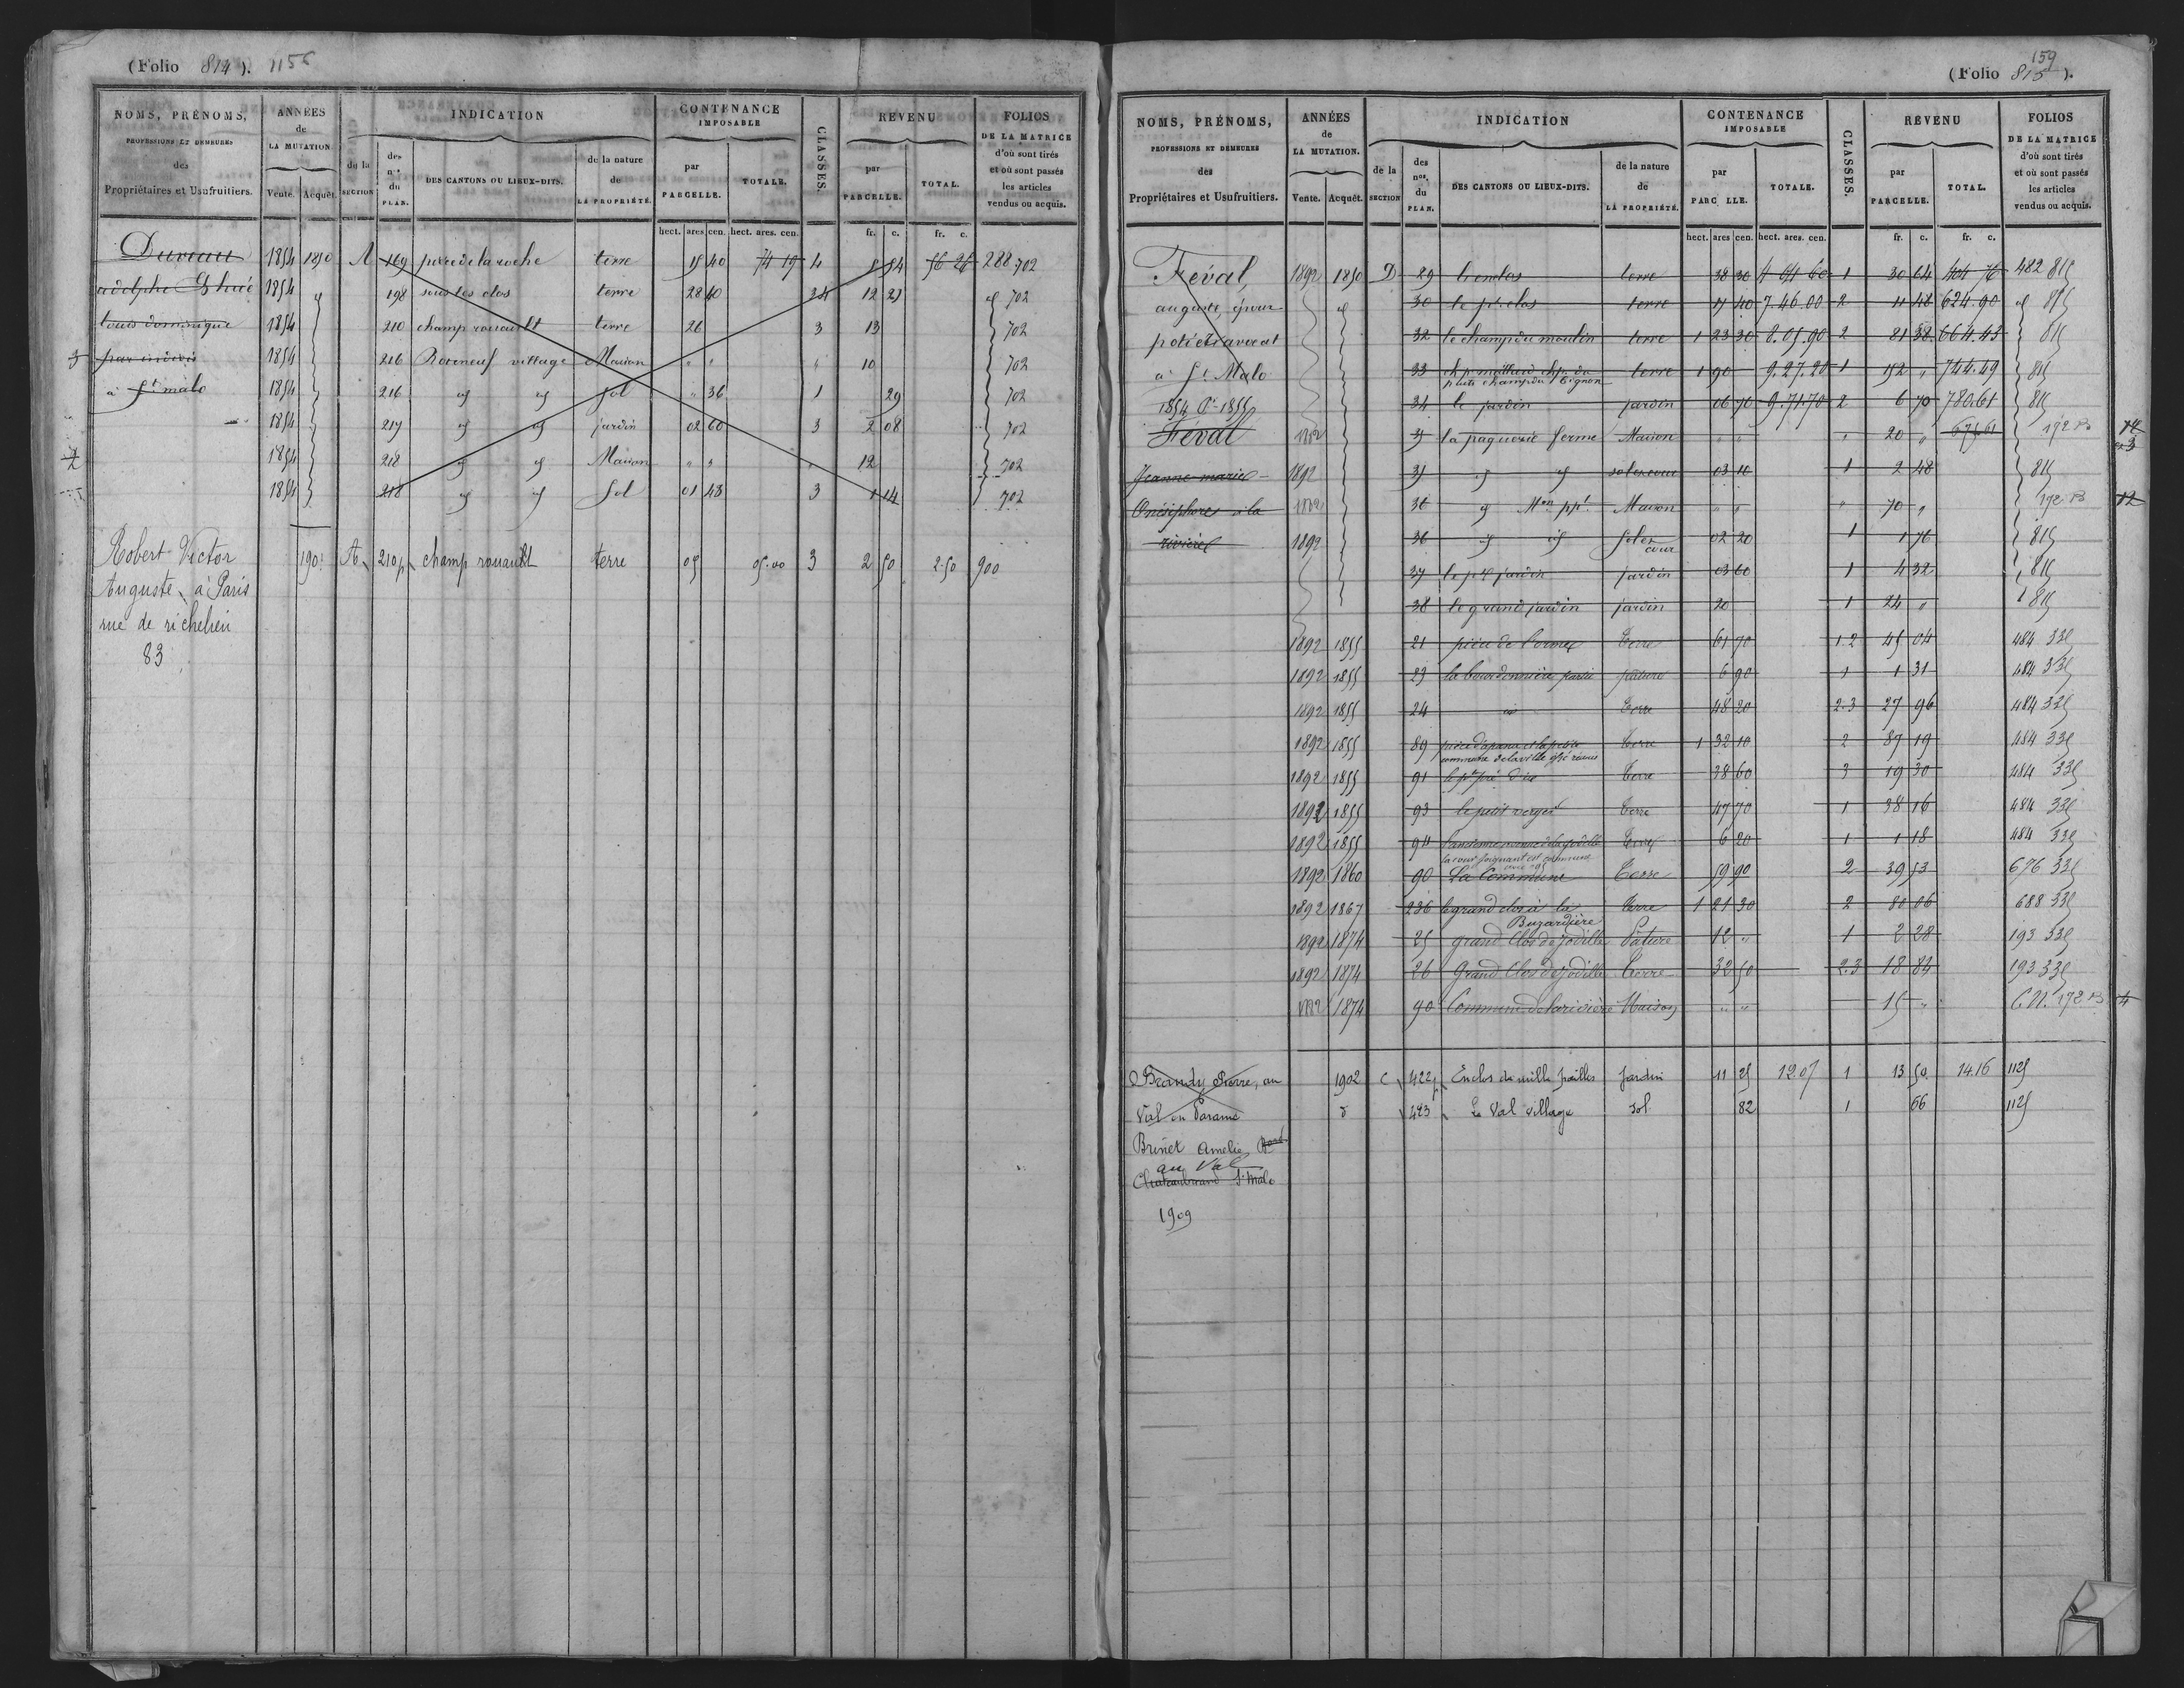 (Folio 814). 1156
NOMS, PRÉNOMS, PROFESSIONS ET DEMEURES des Propriétaires et Usufruitiers.
ANNÉES de LA MUTATION. Vente. Acquêt.
INDICATION
de la SECTION
des nos du PLAN.
DES CANTONS OU LIEUX-DITS.
de la nature de LA PROPRIÉTÉ.
CONTENANCE IMPOSABLE
par PARCELLE. TOTALE.
hect. ares cen. hect. ares. cen.
CLASSES.
REVENU
par PARCELLE. TOTAL.
fr. c. fr. c.
FOLIOS DE LA MATRICE d'où sont tirés et où sont passés les articles vendus ou acquis.
1854 1850 A 169 pièce de la roche terre 15 40 74 19 4 5 54 56 26 288 702
adolphe 1854 198 sous les clos terre 28 40 34 12 21 702
louis dominique 1854 210 champ rouault terre 26 3 13 702
par indivis 1854 216 Roteneuf village Maison " " " 10 702
à St malo 1854 216 id id Sol " 36 1 29 702
1854 217 id id jardin 02 60 3 2 08 702
1854 218 id id Maison " " " 12 702
1854 218 id id Sol 01 43 3 1 14 702
Robert Victor 1901 A 210p champ rouault terre 05 05.00 3 2 50 2.50 900
Auguste à Paris
rue de richelieu
83
159
(Folio 815).
NOMS, PRÉNOMS, PROFESSIONS ET DEMEURES des Propriétaires et Usufruitiers.
ANNÉES de LA MUTATION. Vente. Acquêt.
INDICATION
de la SECTION
des nos. du PLAN.
DES CANTONS OU LIEUX-DITS.
de la nature de LA PROPRIÉTÉ.
CONTENANCE IMPOSABLE
par PARC LLE. TOTALE.
hect. ares cen. hect. ares. cen.
CLASSES.
REVENU
par PARCELLE. TOTAL.
fr. c. fr. c.
FOLIOS DE LA MATRICE d'où sont tirés et où sont passés les articles vendus ou acquis.
Féval, 1892 1850 D 29 l'enclos terre 38 30 4 64 60 1 30 64 404 76 482 815
auguste, époux id 30 le pt clos terre 17 40 7.46.00 2 11 48 624.90 id 815
avocat 32 le champ du moulin terre 1 23 30 8.05.90 2 81 38 664.43 815
à St Malo 33 terre 1 90 9.27.20 1 152 " 744.49 815
1854 1855 34 le jardin jardin 06 70 9.71.70 2 6 70 780.61 815
Féval 1882 35 la paquerie ferme Maison " " " 20 " 674.61 172 B
Jeanne marie 1892 35 id id sol et cour 03 10 1 2 48 815
Onésiphore à la 1882 36 id Mon ppl Maison " " " 70 " 172 B 12
rivière 1892 36 id id Sol et cour 02 20 1 1 76 815
37 le pt jardin jardin 03 60 1 4 32 815
38 le grand jardin jardin 20 1 24 " 815
1892 1855 21 pièce de l'ormel Terre 61 70 1.2 45 04 484 335
1892 1855 23 la bourdonnière partie pature 6 90 1 1 31 484 335
1892 1855 24 id Terre 48 20 2.3 27 96 484 335
1892 1855 89 Terre 1 32 10 2 87 19 484 335
1892 1855 91 Terre 38 60 3 19 30 484 335
1892 1855 93 le petit verger Terre 47 70 1 38 16 484 335
1892 1855 94 Terre 6 20 1 1 18 484 335
la cour joignant est commune
1892 1860 90 La Commune Terre 59 90 2 39 53 676 335
1892 1867 236 le grand clos à la Buzardière Terre 1 21 30 2 80 06 688 335
1892 1874 25 grand Clos de jodille Pâture 12 " 1 2 28 193 335
1892 1874 26 Grand Clos de jodille Terre 32 50 2.3 18 84 193 335
1882 1874 90 Commune de la rivière Maison " " 15 " C.N. 172 B 4
Beandy Pierre, au 1902 C 422p Enclos de mille pailles Jardin 11 25 12.07 1 13 50 14.16 1125
Val en Paramé d 423 Le Val village Sol 82 1 66 1125
Brinet Amélie
au Val
Chateaubriand St Malo
1909